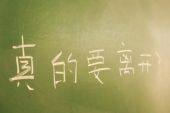 真的要离开